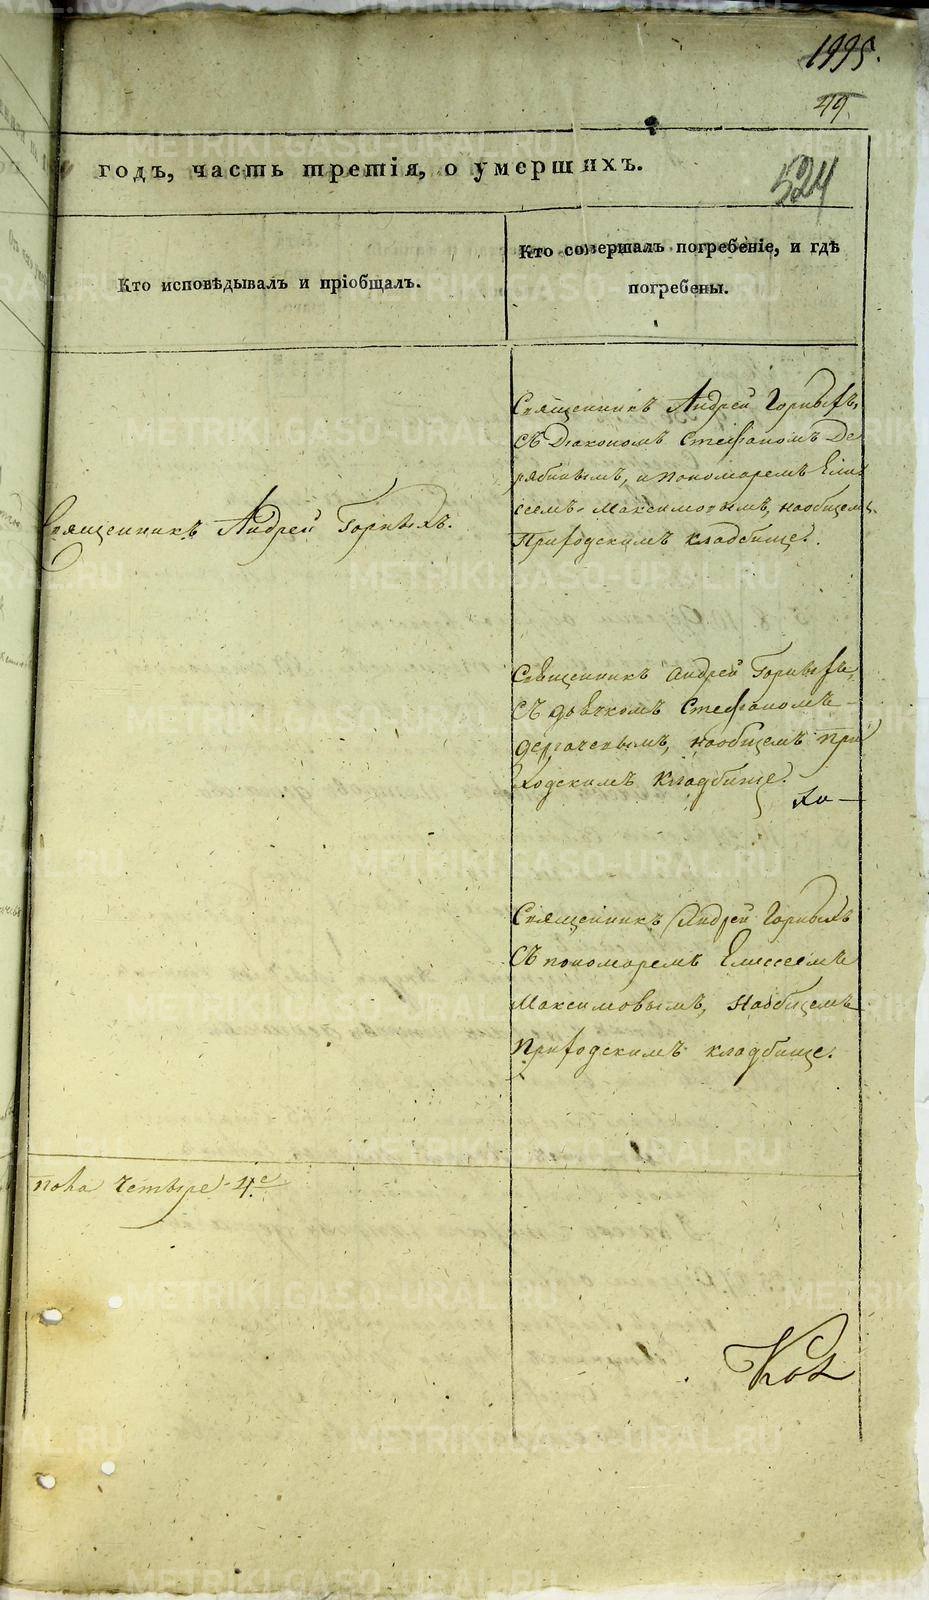 1995.
49.
524
годъ, часть третія, о умершихъ.
Кто исповѣдывалъ и пріобщалъ.
Кто совершалъ погребеніе, и гдѣ
погребены.
Священникъ Андрей Горныхъ,
съ Діакономъ Стефаномъ Де
рябинымъ, и Пономаремъ Ели
сеемъ Максимовымъ, наобщемъ
Приходскимъ кладбище.
Священникъ Андрей Горныхъ.
Священникъ Андрей Горныхъ,
съ дьячкомъ Стефаномъ
дергачевымъ, наобщемъ при
ходскимъ кладбище.
Священникъ Андрей Горныхъ
съ пономаремъ Елисеемъ
Максимовымъ, наобщемъ
Приходскимъ кладбище.
пола четыре 4е
METRIKI.GASO-URAL.RU